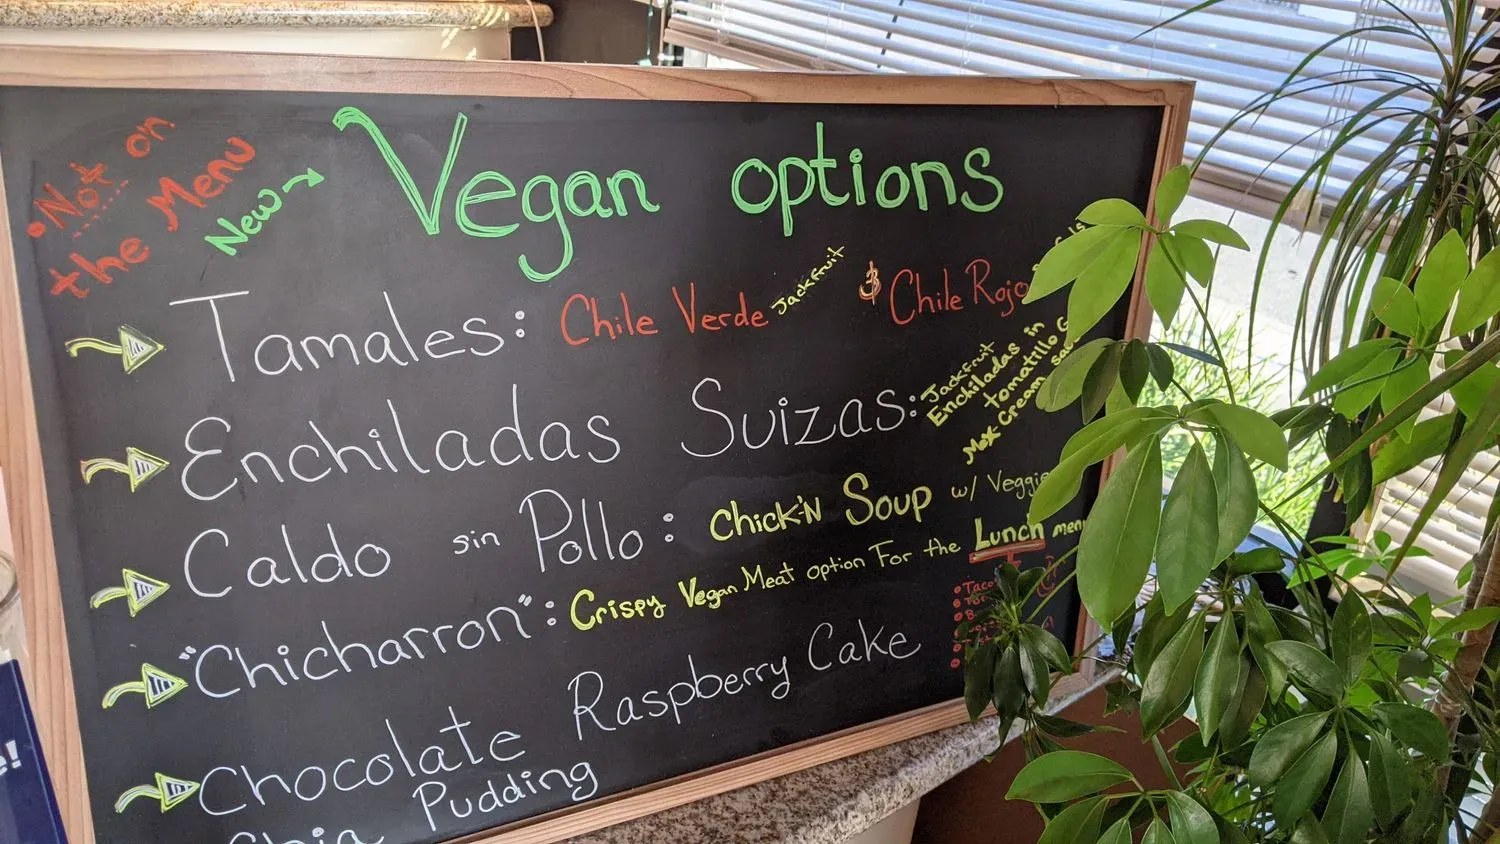 • Not on
the Menu
New →
Vegan options
Tamales: Chile Verde Jackfruit & Chile Rojo
Enchiladas Suizas: Jackfruit
Enchiladas in
tomatillo
Mex Cream
Caldo sin Pollo: Chick'N Soup w/ Veggie
"Chicharron": Crispy Vegan Meat option For the Lunch menu
• Taco
Chocolate Raspberry Cake
Chia Pudding
e!